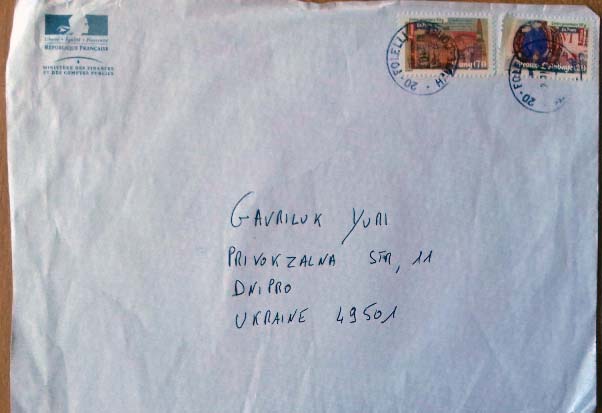 Liberté • Égalité • Fraternité
RÉPUBLIQUE FRANÇAISE
MINISTÈRE DES FINANCES
ET DES COMPTES PUBLICS
20 - FOLELLI
20 - FOLE
GAVRILUK YURI
PRIVOKZALNA STR, 11
DNIPRO
UKRAINE 49501